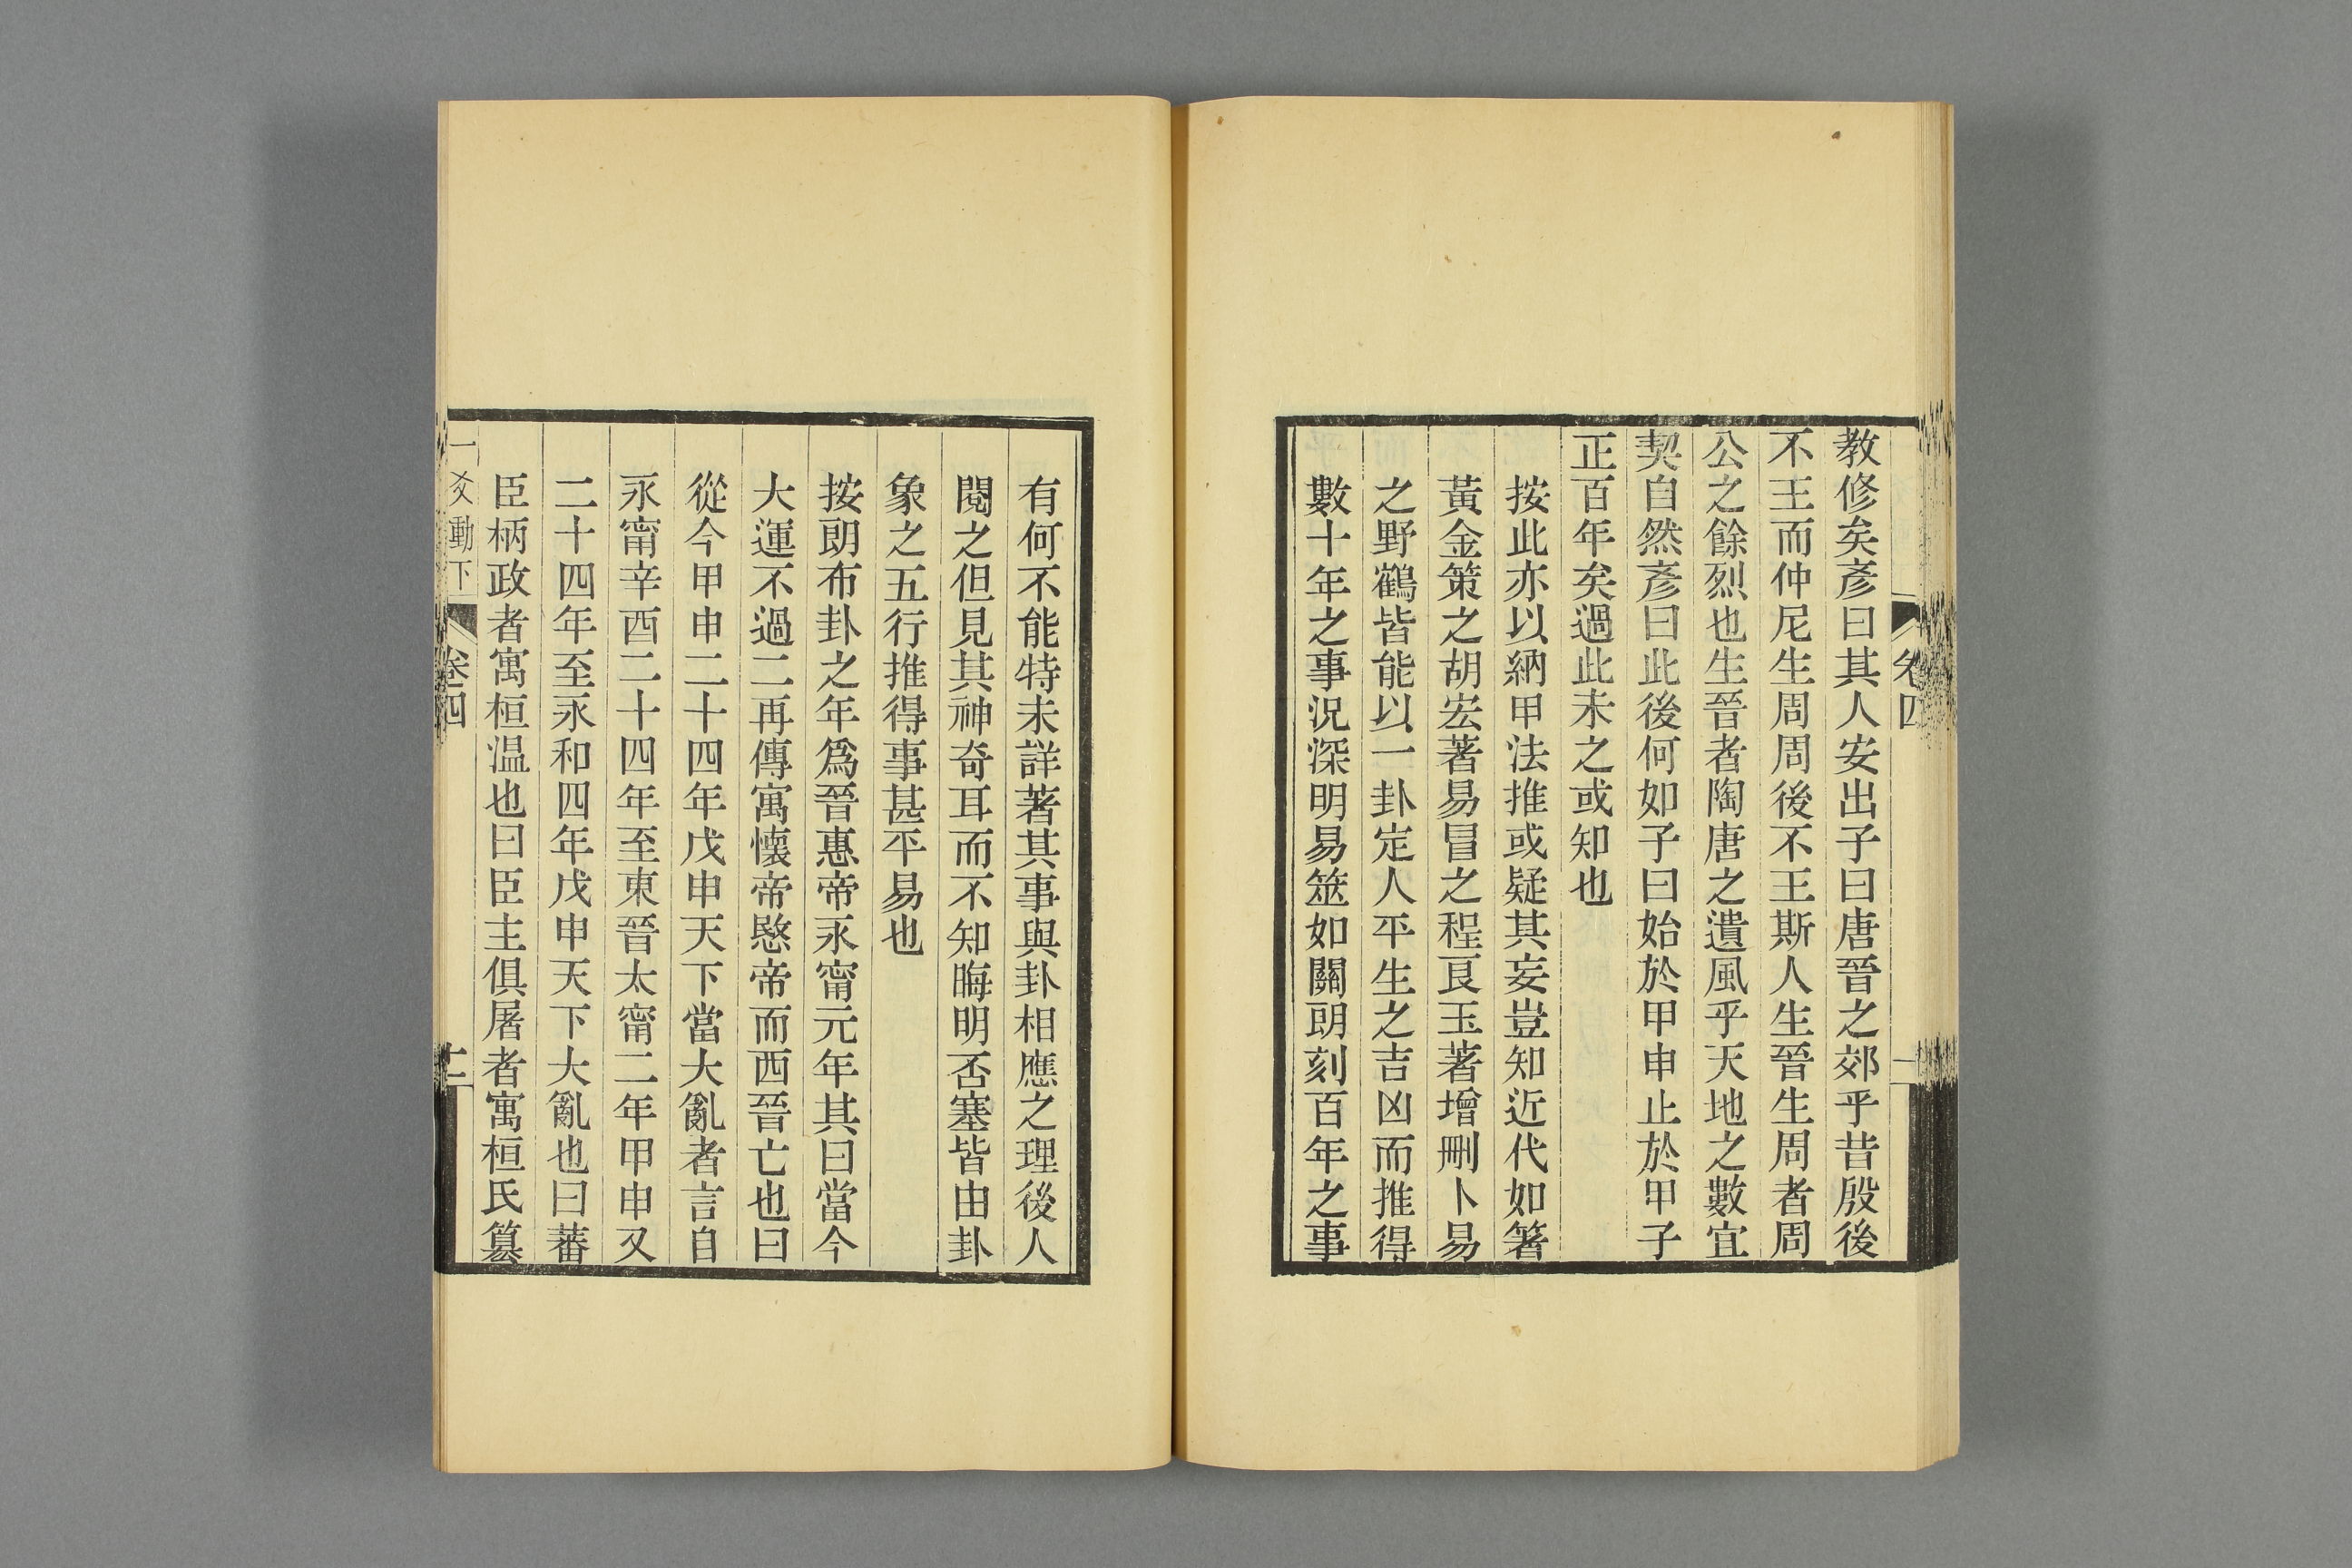 卷四
教修矣彥曰其人安出子曰唐晉之郊乎昔殷後
不王而仲尼生周周後不王斯人生晉生周者周
公之餘烈也生晉者陶唐之遺風乎天地之數宜
契自然彥曰此後何如子曰始於甲申止於甲子
正百年矣過此未之或知也
按此亦以納甲法推或疑其妄豈知近代如箸
黃金策之胡宏著易冒之程良玉著增刪卜易
之野鶴皆能以一卦定人平生之吉凶而推得
數十年之事況深明易筮如關朗刻百年之事
有何不能特未詳著其事與卦相應之理後人
閱之但見其神奇耳而不知晦明否塞皆由卦
象之五行推得事甚平易也
按朗布卦之年爲晉惠帝永甯元年其曰當今
大運不過二再傳寓懷帝愍帝而西晉亡也曰
從今甲申二十四年戊申天下當大亂者言自
永甯辛酉二十四年至東晉太甯二年甲申又
二十四年至永和四年戊申天下大亂也曰蕃
臣柄政者寓桓温也曰臣主俱屠者寓桓氏篡
一爻動下
卷四
十二